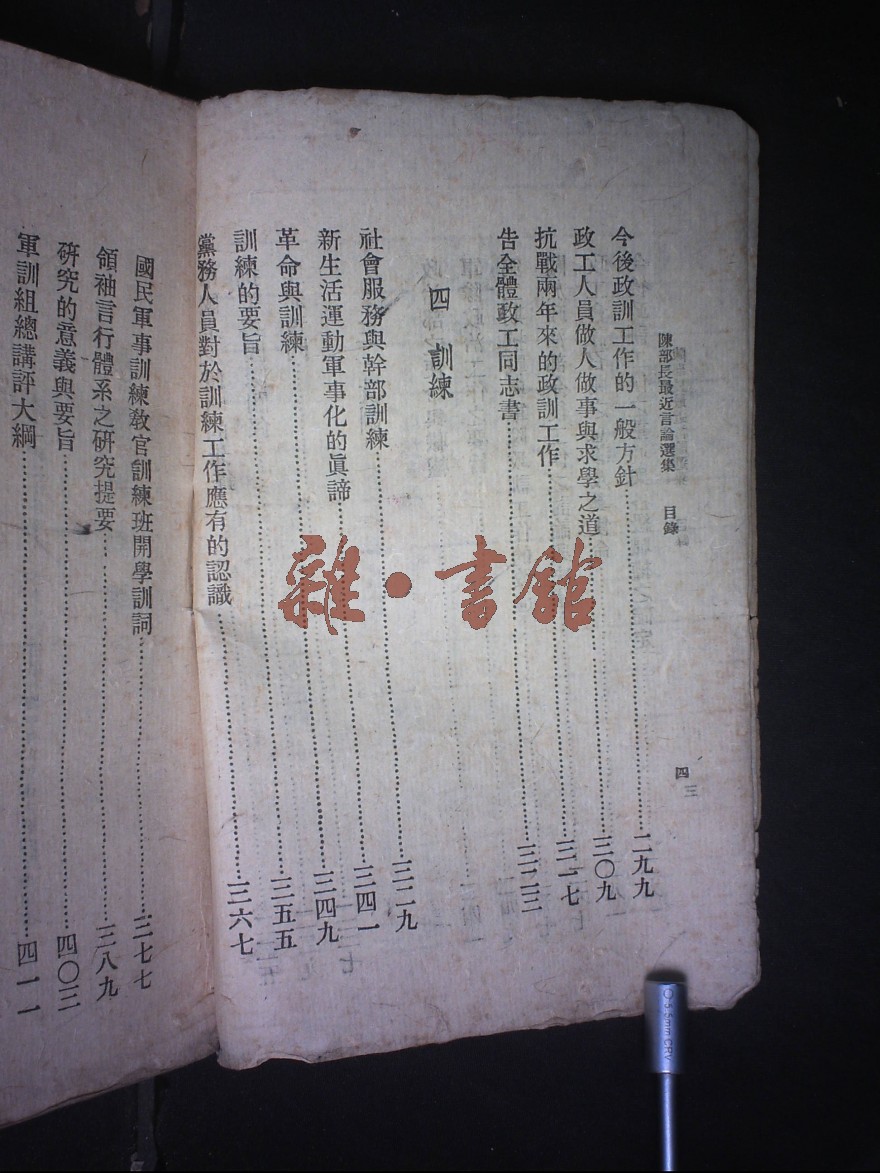 陳部長最近言論選集 目錄 四
今後政訓工作的一般方針……二九九
政工人員做人做事與求學之道……三〇九
抗戰兩年來的政訓工作……三一七
告全體政工同志書……三二三
四 訓練
社會服務與幹部訓練……三二九
新生活運動軍事化的眞諦……三四一
革命與訓練……三四九
訓練的要旨……三五五
黨務人員對於訓練工作應有的認識……三六七
國民軍事訓練敎官訓練班開學訓詞……三七七
領袖言行體系之硏究提要……三八九
硏究的意義與要旨……四〇三
軍訓組總講評大綱……四一一
雜·書館